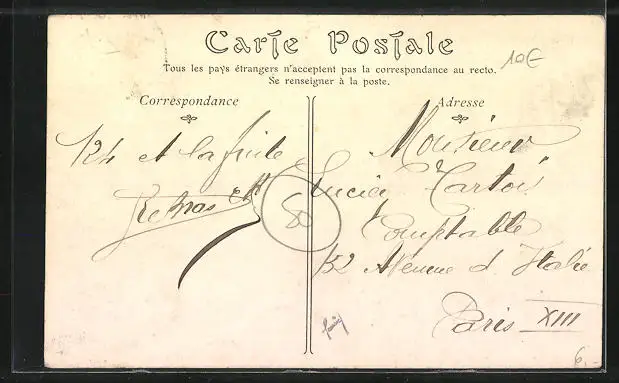 Carte Postale
10€
Tous les pays étrangers n'acceptent pas la correspondance au recto.
Se renseigner à la poste.
Correspondance
Adresse
124 et la suite
Monsieur
Lucien
Comptable
152 Avenue d'Italie
Paris XIII
6.-